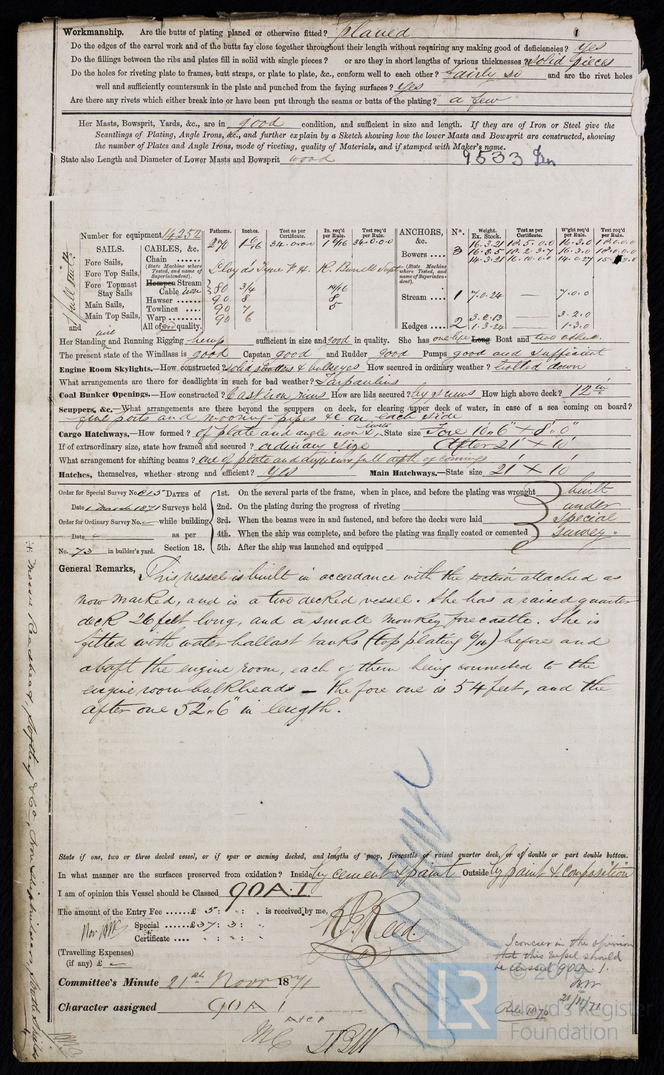 Workmanship. Are the butts of plating planed or otherwise fitted? planed
Do the edges of the carvel work and of the butts fay close together throughout their length without requiring any making good of deficiencies? yes
Do the fillings between the ribs and plates fill in solid with single pieces? or are they in short lengths of various thicknesses? solid pieces
Do the holes for riveting plate to frames, butt straps, or plate to plate, &c., conform well to each other? fairly so and are the rivet holes
well and sufficiently countersunk in the plate and punched from the faying surfaces? yes
Are there any rivets which either break into or have been put through the seams or butts of the plating? a few
Her Masts, Bowsprit, Yards, &c., are in good condition, and sufficient in size and length. If they are of Iron or Steel give the
Scantlings of Plating, Angle Irons, &c., and further explain by a Sketch showing how the lower Masts and Bowsprit are constructed, showing
the number of Plates and Angle Irons, mode of riveting, quality of Materials, and if stamped with Maker's name.
State also Length and Diameter of Lower Masts and Bowsprit wood
9533 Iron
Number for equipment 14252 Fathoms. Inches. Test as per Certificate. In. req'd per Rule. Test req'd per Rule. ANCHORS, &c. Nos. Weight. Ex. Stock. Test as per Certificate. W'ght req'd per Rule. Test req'd per Rule.
SAILS. CABLES, &c.
Fore Sails, Chain 270 1 6/16 34.0.0.0 1 6/16 34.0.0.0 Bowers 3 16.3.21
Fore Top Sails, (State Machine where Tested, and name of Superintendent). Lloyds Tyne P.H.
Fore Topmast Stay Sails Hempen Stream Cable 80 3/4
Main Sails, Hawser 90 8 8 Stream 1 7.0.24 — 7.0.0
Main Top Sails, Towlines 90 7 5
Warp 90 6 Kedges 2 3.2.13 — 3.2.0
and All of good quality. 1.3.24 — 1.3.0
Her Standing and Running Rigging hemp sufficient in size and good in quality. She has one life Long Boat and two others
The present state of the Windlass is good Capstan good and Rudder good Pumps good and sufficient
Engine Room Skylights.—How constructed? How secured in ordinary weather? bolted down
What arrangements are there for deadlights in such for bad weather? Tarpaulins
Coal Bunker Openings.—How constructed? cast iron rims How are lids secured? by screws How high above deck? 12 ins
Scuppers, &c.—What arrangements are there beyond the scuppers on deck, for clearing upper deck of water, in case of a sea coming on board?
five ports and mooring-pipes &c on each side
Cargo Hatchways.—How formed? of plate and angle iron State size Fore 10'.6" × 8'.0"
If of extraordinary size, state how framed and secured? ordinary size After 21' × 10'
What arrangement for shifting beams? one of plate and angle iron full depth of comings
Hatches, themselves, whether strong and efficient? Yes Main Hatchways.—State size 21' × 10'
Order for Special Survey No. 815 DATES of 1st. On the several parts of the frame, when in place, and before the plating was wrought built
Date 1 March 1871 Surveys held 2nd. On the plating during the progress of riveting under
Order for Ordinary Survey No. — while building 3rd. When the beams were in and fastened, and before the decks were laid Special
Date — as per 4th. When the ship was complete, and before the plating was finally coated or cemented Survey.
No. 73 in builder's yard. Section 18. 5th. After the ship was launched and equipped
General Remarks, This vessel is built in accordance with the section attached as
now marked, and is a two decked vessel. She has a raised quarter
deck 26 feet long, and a small monkey forecastle. She is
fitted with water ballast tanks (top plating 6/16) before and
abaft the engine room, each of them being connected to the
engine room bulkheads — the fore one is 54 feet, and the
after one 52'.6" in length.
State if one, two or three decked vessel, or if spar or awning decked, and lengths of poop, forecastle or raised quarter deck, or of double or part double bottom.
In what manner are the surfaces preserved from oxidation? Inside by cement & paint Outside by paint & composition
I am of opinion this Vessel should be Classed 90A.1
The amount of the Entry Fee £ 5 : : is received by me,
Special £37 : 3 :
Certificate : :
R. Reed
(Travelling Expenses)
(if any) £ —
I concur in the opinion
that this vessel should
be classed 90A.1.
21/11/71
Committee's Minute 21st Novr 1871
Character assigned 90A1
LR
© 20
Lloyd's Register
Foundation